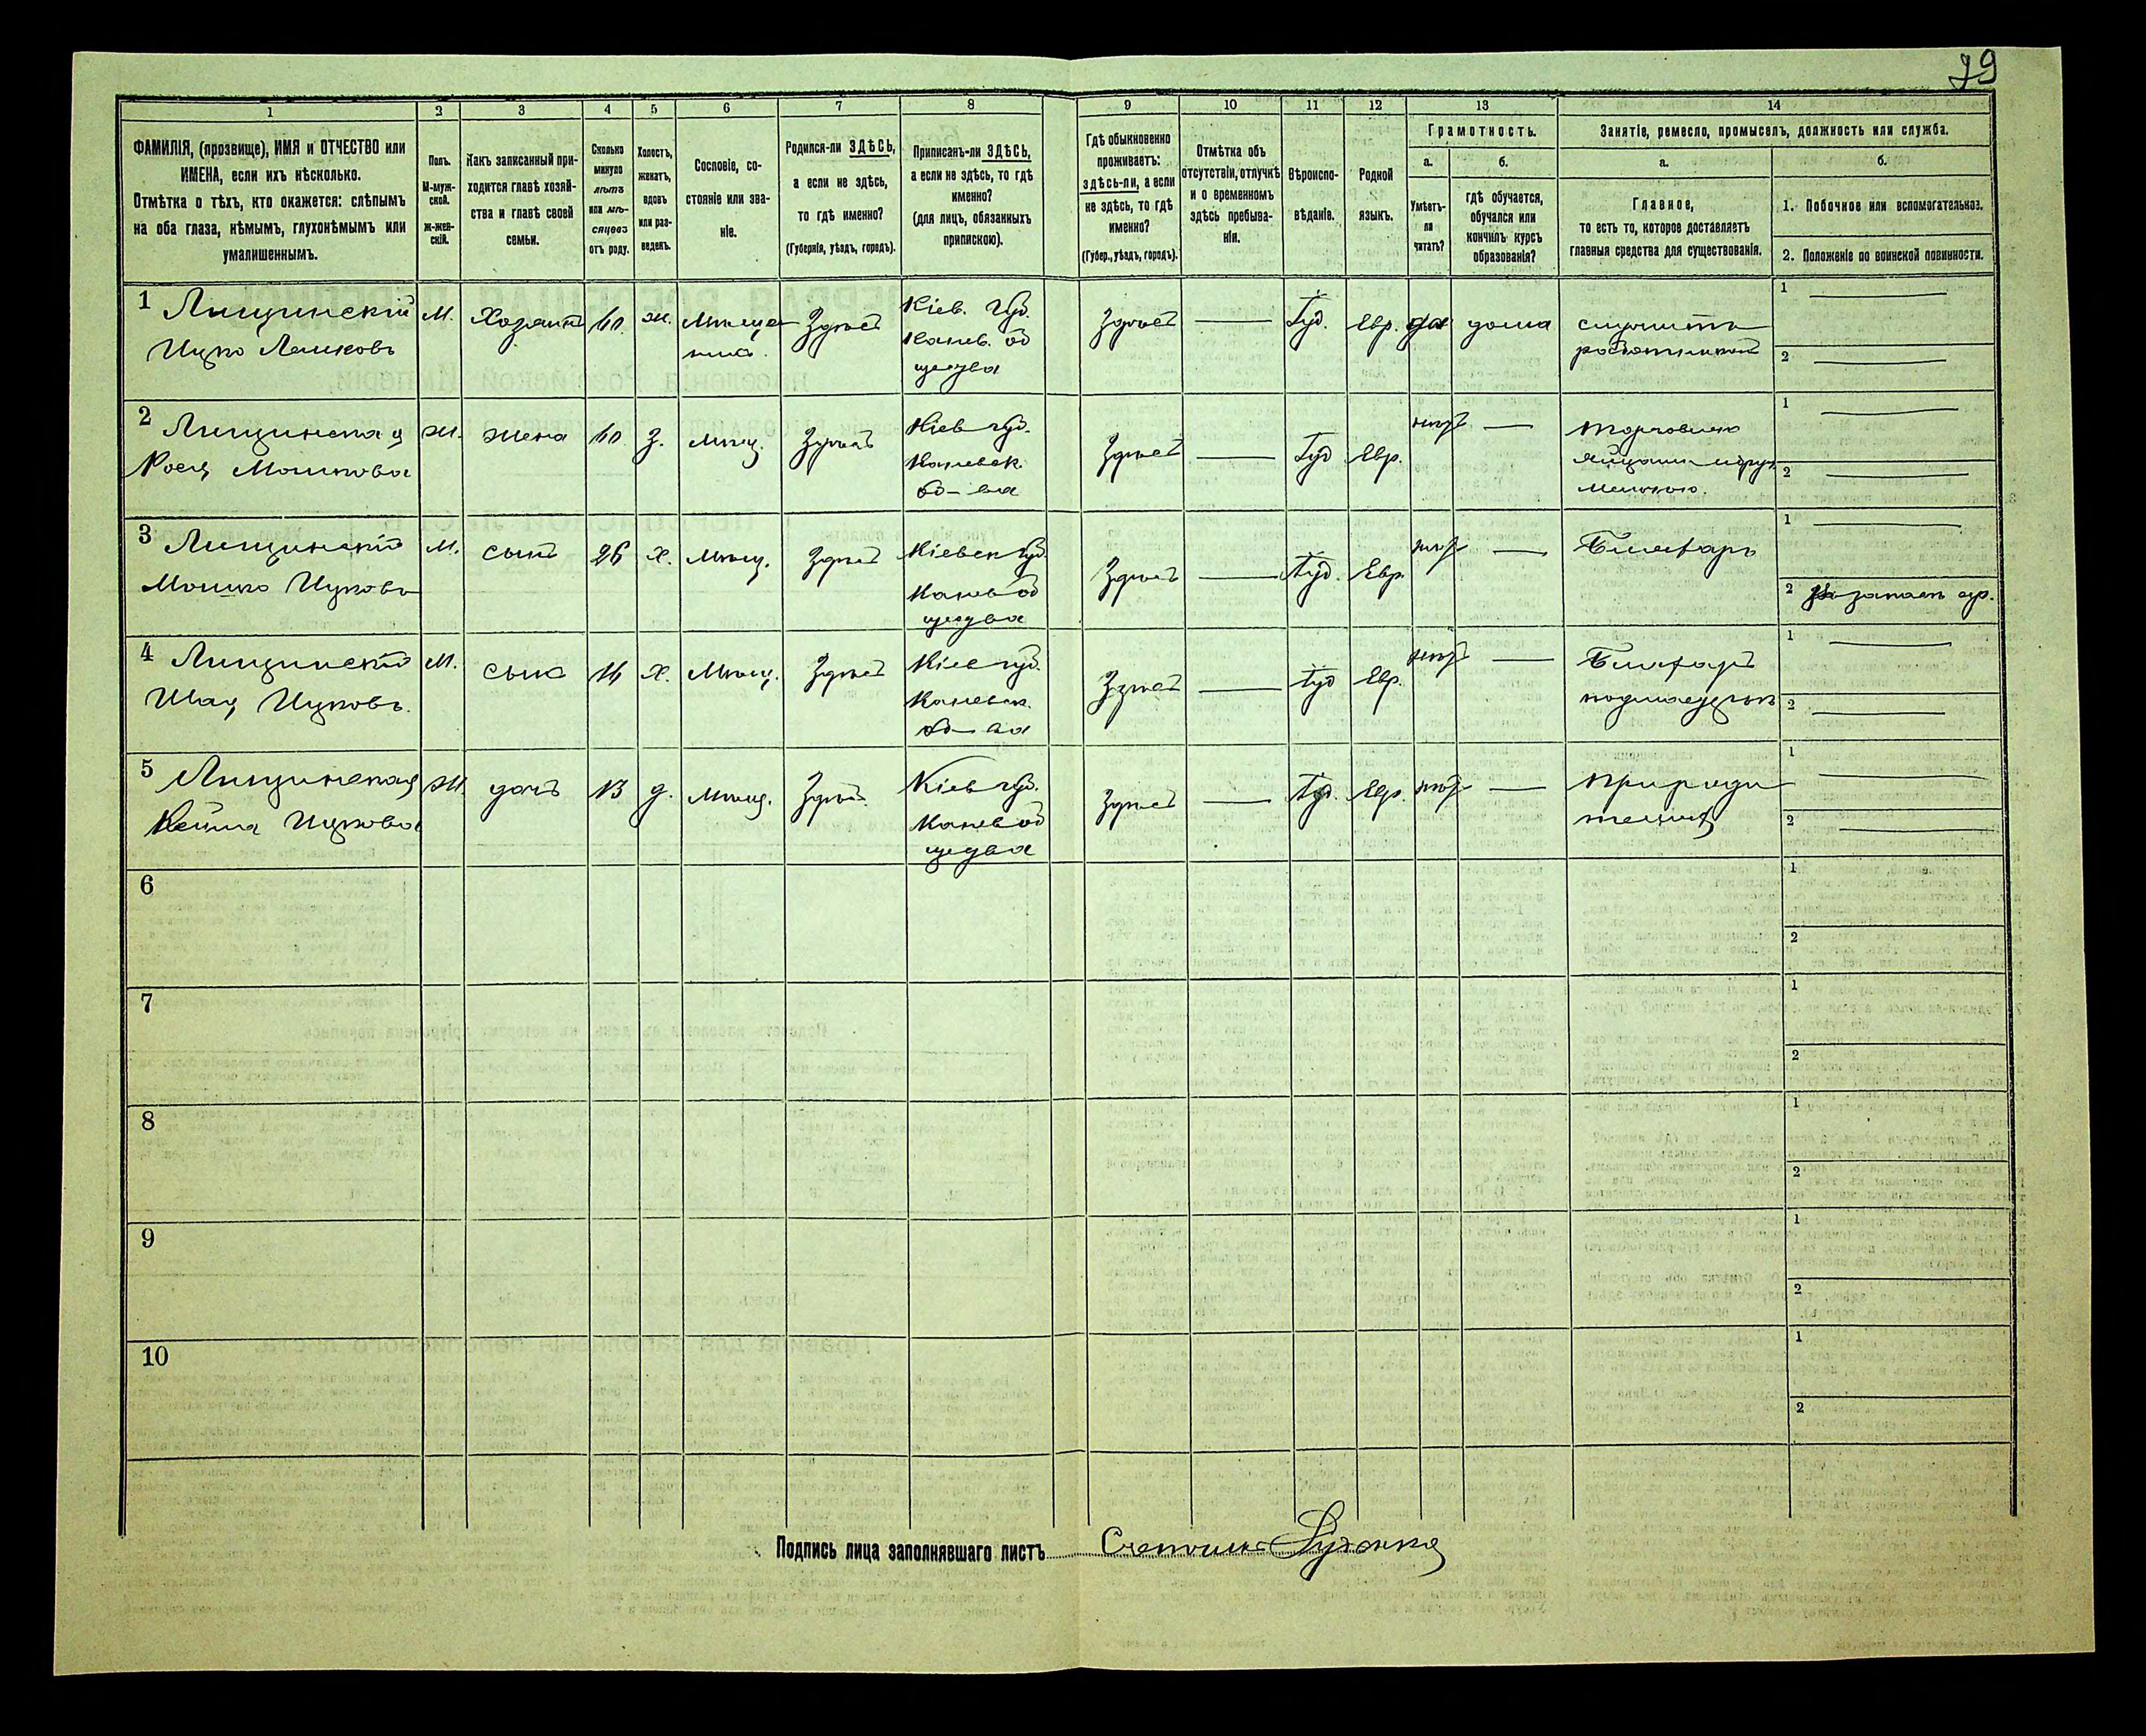 79
1 2 3 4 5 6 7 8 9 10 11 12 13 14
ФАМИЛІЯ, (прозвище), ИМЯ и ОТЧЕСТВО или
ИМЕНА, если ихъ нѣсколько.
Отмѣтка о тѣхъ, кто окажется: слѣпымъ
на оба глаза, нѣмымъ, глухонѣмымъ или
умалишеннымъ.
Полъ.
М-муж-
ской.
Ж-жен-
скій.
Какъ записанный при-
ходится главѣ хозяй-
ства и главѣ своей
семьи.
Сколько
минуло
лѣтъ
или мѣ-
сяцевъ
отъ роду.
Холостъ,
женатъ,
вдовъ
или раз-
веденъ.
Сословіе, со-
стояніе или зва-
ніе.
Родился-ли ЗДѢСЬ,
а если не здѣсь,
то гдѣ именно?
(Губернія, уѣздъ, городъ).
Приписанъ-ли ЗДѢСЬ,
а если не здѣсь, то гдѣ
именно?
(для лицъ, обязанныхъ
припискою).
Гдѣ обыкновенно
проживаетъ:
здѣсь-ли, а если
не здѣсь, то гдѣ
именно?
(Губер., уѣздъ, городъ).
Отмѣтка объ
отсутствіи, отлучкѣ
и о временномъ
здѣсь пребыва-
ніи.
Вѣроиспо-
вѣданіе.
Родной
языкъ.
Грамотность.
а.
Умѣетъ-
ли
читать?
б.
гдѣ обучается,
обучался или
кончилъ курсъ
образованія?
Занятіе, ремесло, промыселъ, должность или служба.
а.
Главное,
то есть то, которое доставляетъ
главныя средства для существованія.
б.
1. Побочное или вспомогательное.
2. Положеніе по воинской повинности.
1 Лищинскій М. Хозяинъ 60 ж. Мѣща Здѣсь Кіев. губ. Здѣсь Іуд. Евр. да дома служитъ 1
Ицко Лейковъ нинъ. Канев. об работникомъ 2
щества
2 Лищинская Ж. жена 60 З. мѣщ. Здѣсь Кіев губ. Здѣсь Іуд Евр. нѣтъ торговля 1
Мошкова Каневск. яйцами 2
об-ва
3 Лищинскій М. сынъ 26 х. мѣщ. Здѣсь Кіевск губ. Здѣсь Іуд. Евр. нѣтъ 1
Мошко Ицковъ Канев об 2
щества
4 Лищинскій М. сынъ х. Мѣщ. Здѣсь Кіев губ. Здѣсь Іуд Евр. нѣтъ 1
Ицковъ. Каневск. 2
об-ва
5 Лищинская Ж. дочь 13 д. мѣщ. Здѣсь Кіев губ. Здѣсь Іуд. Евр. нѣтъ при роди 1
Ицкова Канев об теляхъ 2
щества
6 1
2
7 1
2
8 1
2
9 1
2
10 1
2
Подпись лица заполнявшаго листъ Счетчикъ